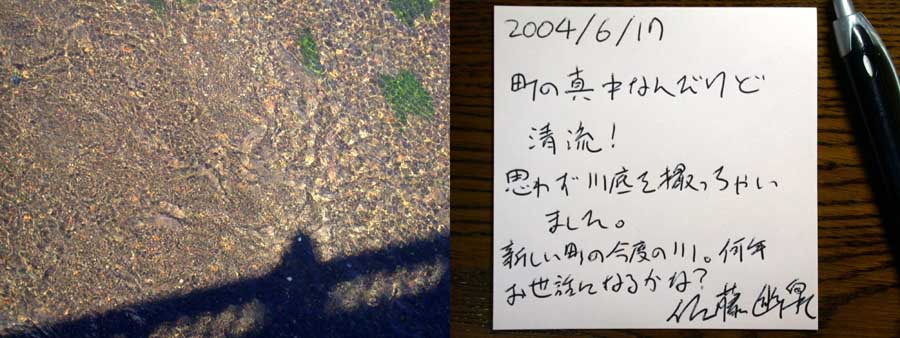 2004/6/17
町の真中なんだけど
清流!
思わず川底を撮っちゃい
ました。
新しい町の今度の川。何年
お世話になるかな?
佐藤